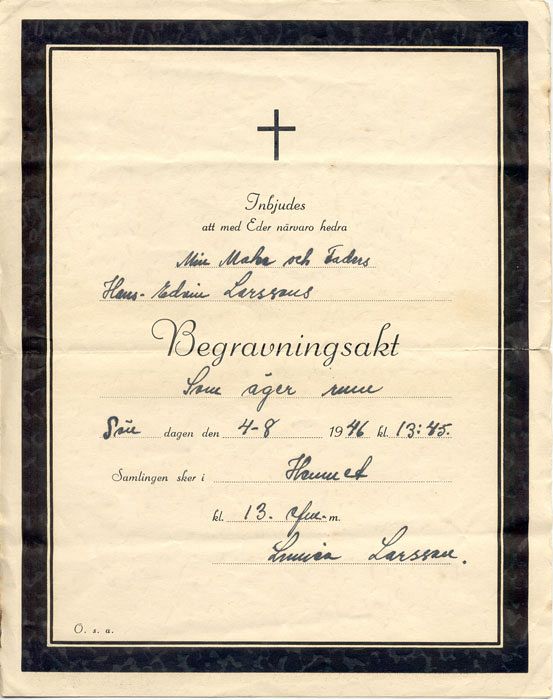 Inbjudes
att med Eder närvaro hedra
Min Make och Faders
Hans-Edvin Larssons
Begravningsakt
Som äger rum
Sön dagen den 4-8 1946 kl. 13:45.
Samlingen sker i Hemmet
kl. 13. m.
Larsson.
O. s. a.